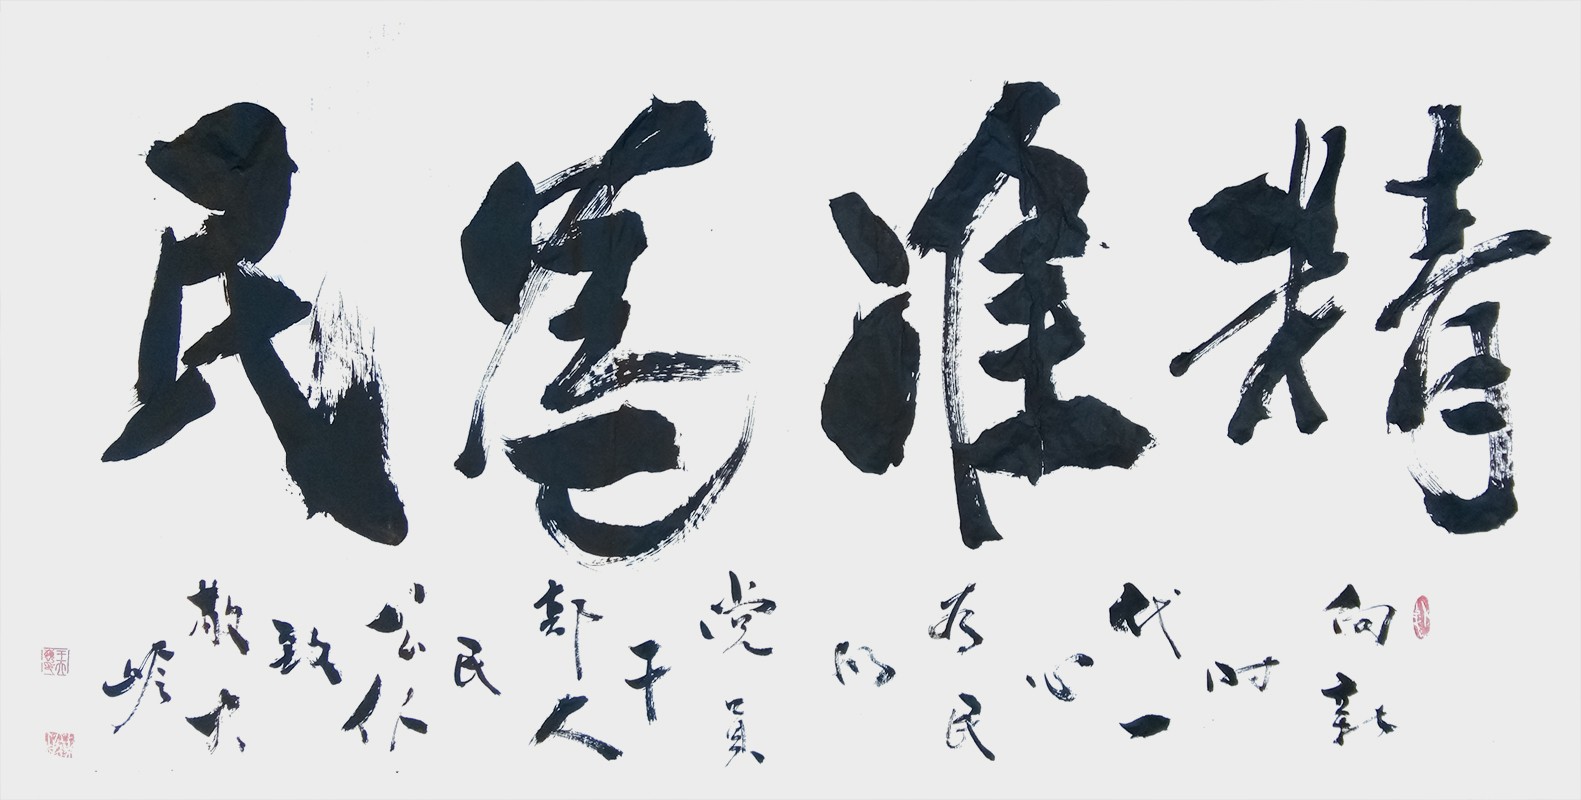 精准為民
向新
时
代一
心
为民
的
党员
干
部人
民
公仆
致
敬大